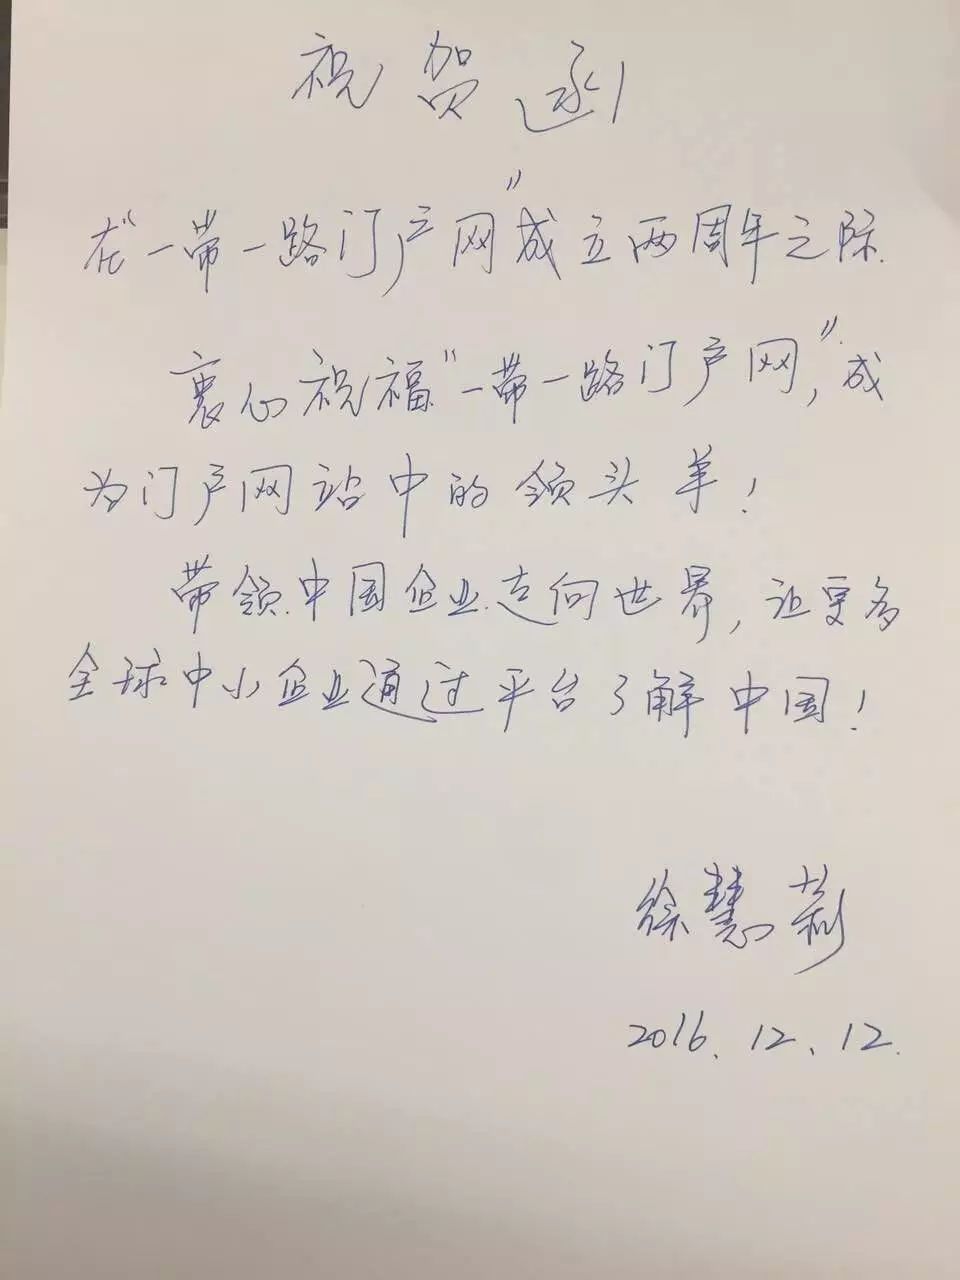 祝贺函
在“一带一路门户网”成立两周年之际.
衷心祝福“一带一路门户网”,成
为门户网站中的领头羊！
带领中国企业走向世界,让更多
全球中小企业通过平台了解中国！
徐慧莉
2016.12.12.